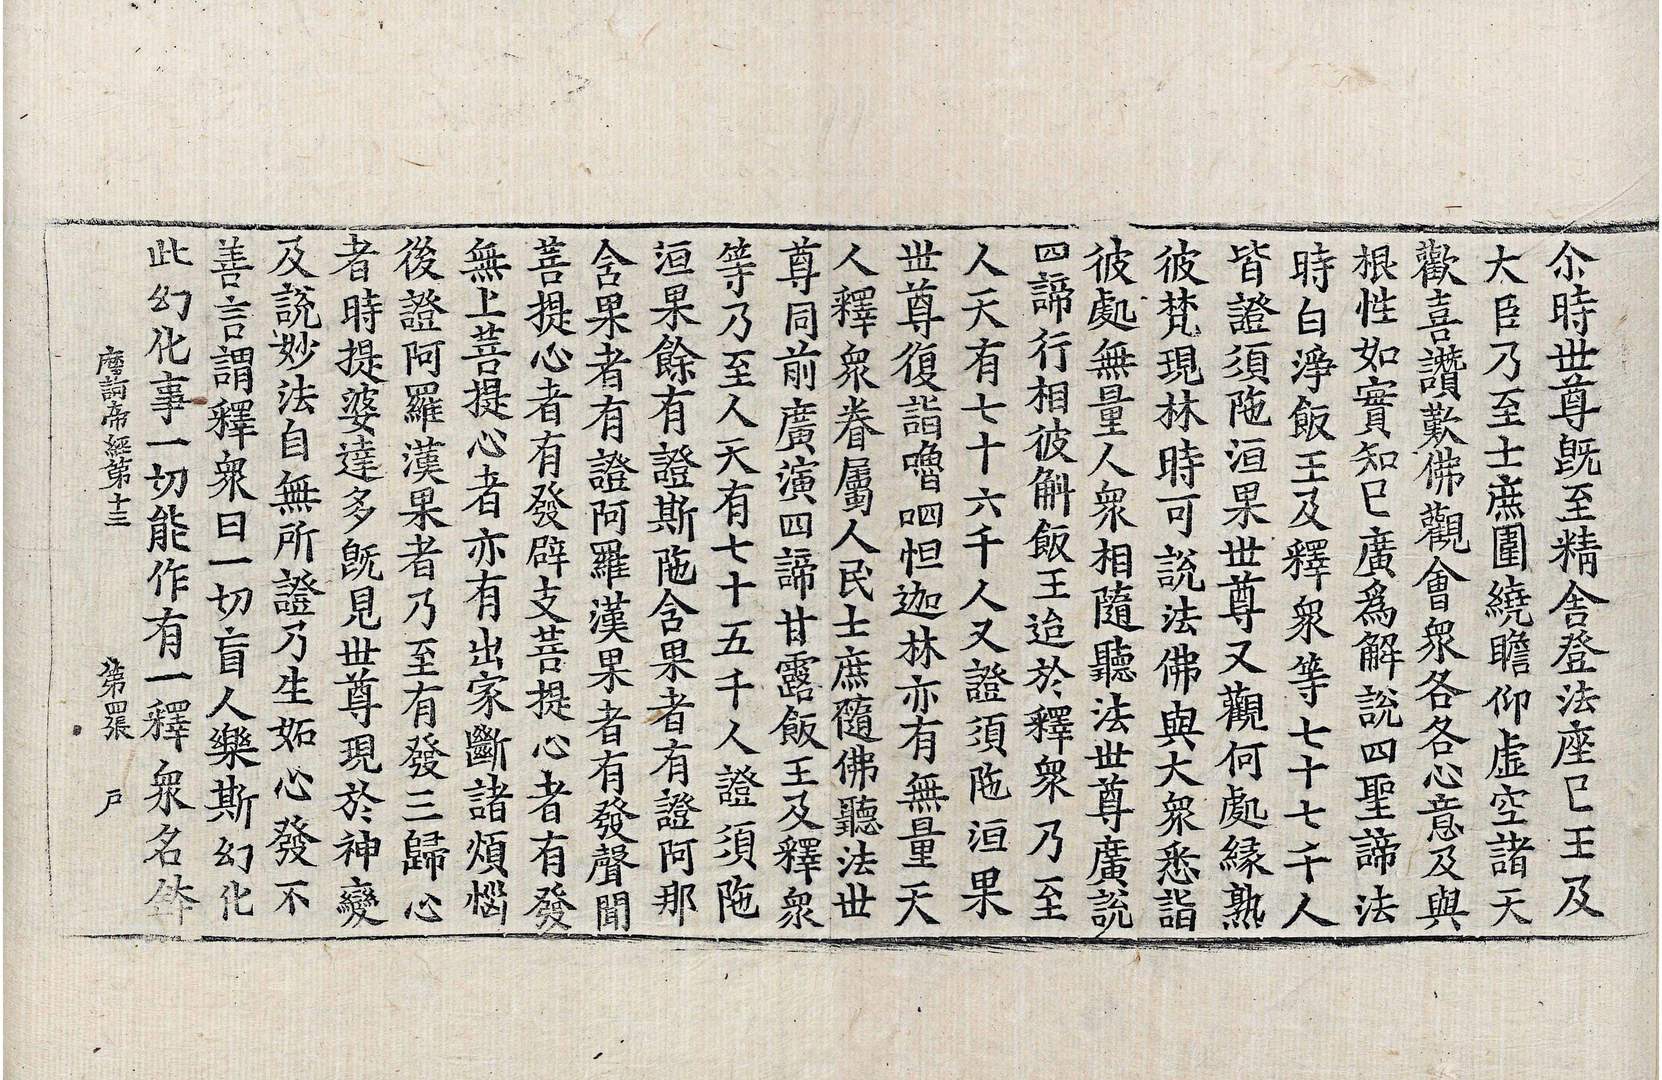 尒時世尊旣至精舍登法座巳王及
大臣乃至士庶圍繞瞻仰虛空諸天
歡喜讚歎佛觀會衆各各心意及與
根性如實知巳廣爲解說四聖諦法
時白淨飯王及釋衆等七十七千人
皆證須陁洹果世尊又觀何處緣熟
彼梵現林時可說法佛與大衆悉詣
彼處無量人衆相隨聽法世尊廣說
四諦行相彼斛飯王迨於釋衆乃至
人天有七十六千人又證須陁洹果
世尊復詣嚕呬怛迦林亦有無量天
人釋衆眷屬人民士庶隨佛聽法世
尊同前廣演四諦甘露飯王及釋衆
等乃至人天有七十五千人證須陁
洹果餘有證斯陁含果者有證阿那
含果者有證阿羅漢果者有發聲聞
菩提心者有發辟支菩提心者有發
無上菩提心者亦有出家斷諸煩惱
後證阿羅漢果者乃至有發三歸心
者時提婆達多旣見世尊現於神變
及說妙法自無所證乃生妬心發不
善言謂釋衆曰一切盲人樂斯幻化
此幻化事一切能作有一釋衆名鉢
摩訶帝經第十三　第四張　戶